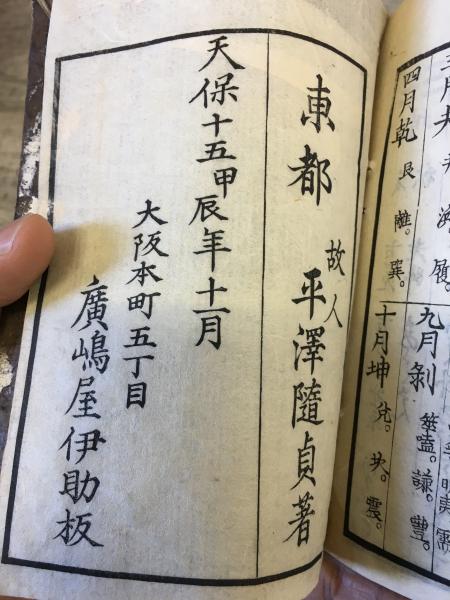 四月乾 艮。離。巽。
九月剝 筮嗑。謙。豐。
十月坤 兌。坎。震。
東都 故人 平澤隨貞著
天保十五甲辰年十一月
大阪本町五丁目
廣嶋屋伊助板